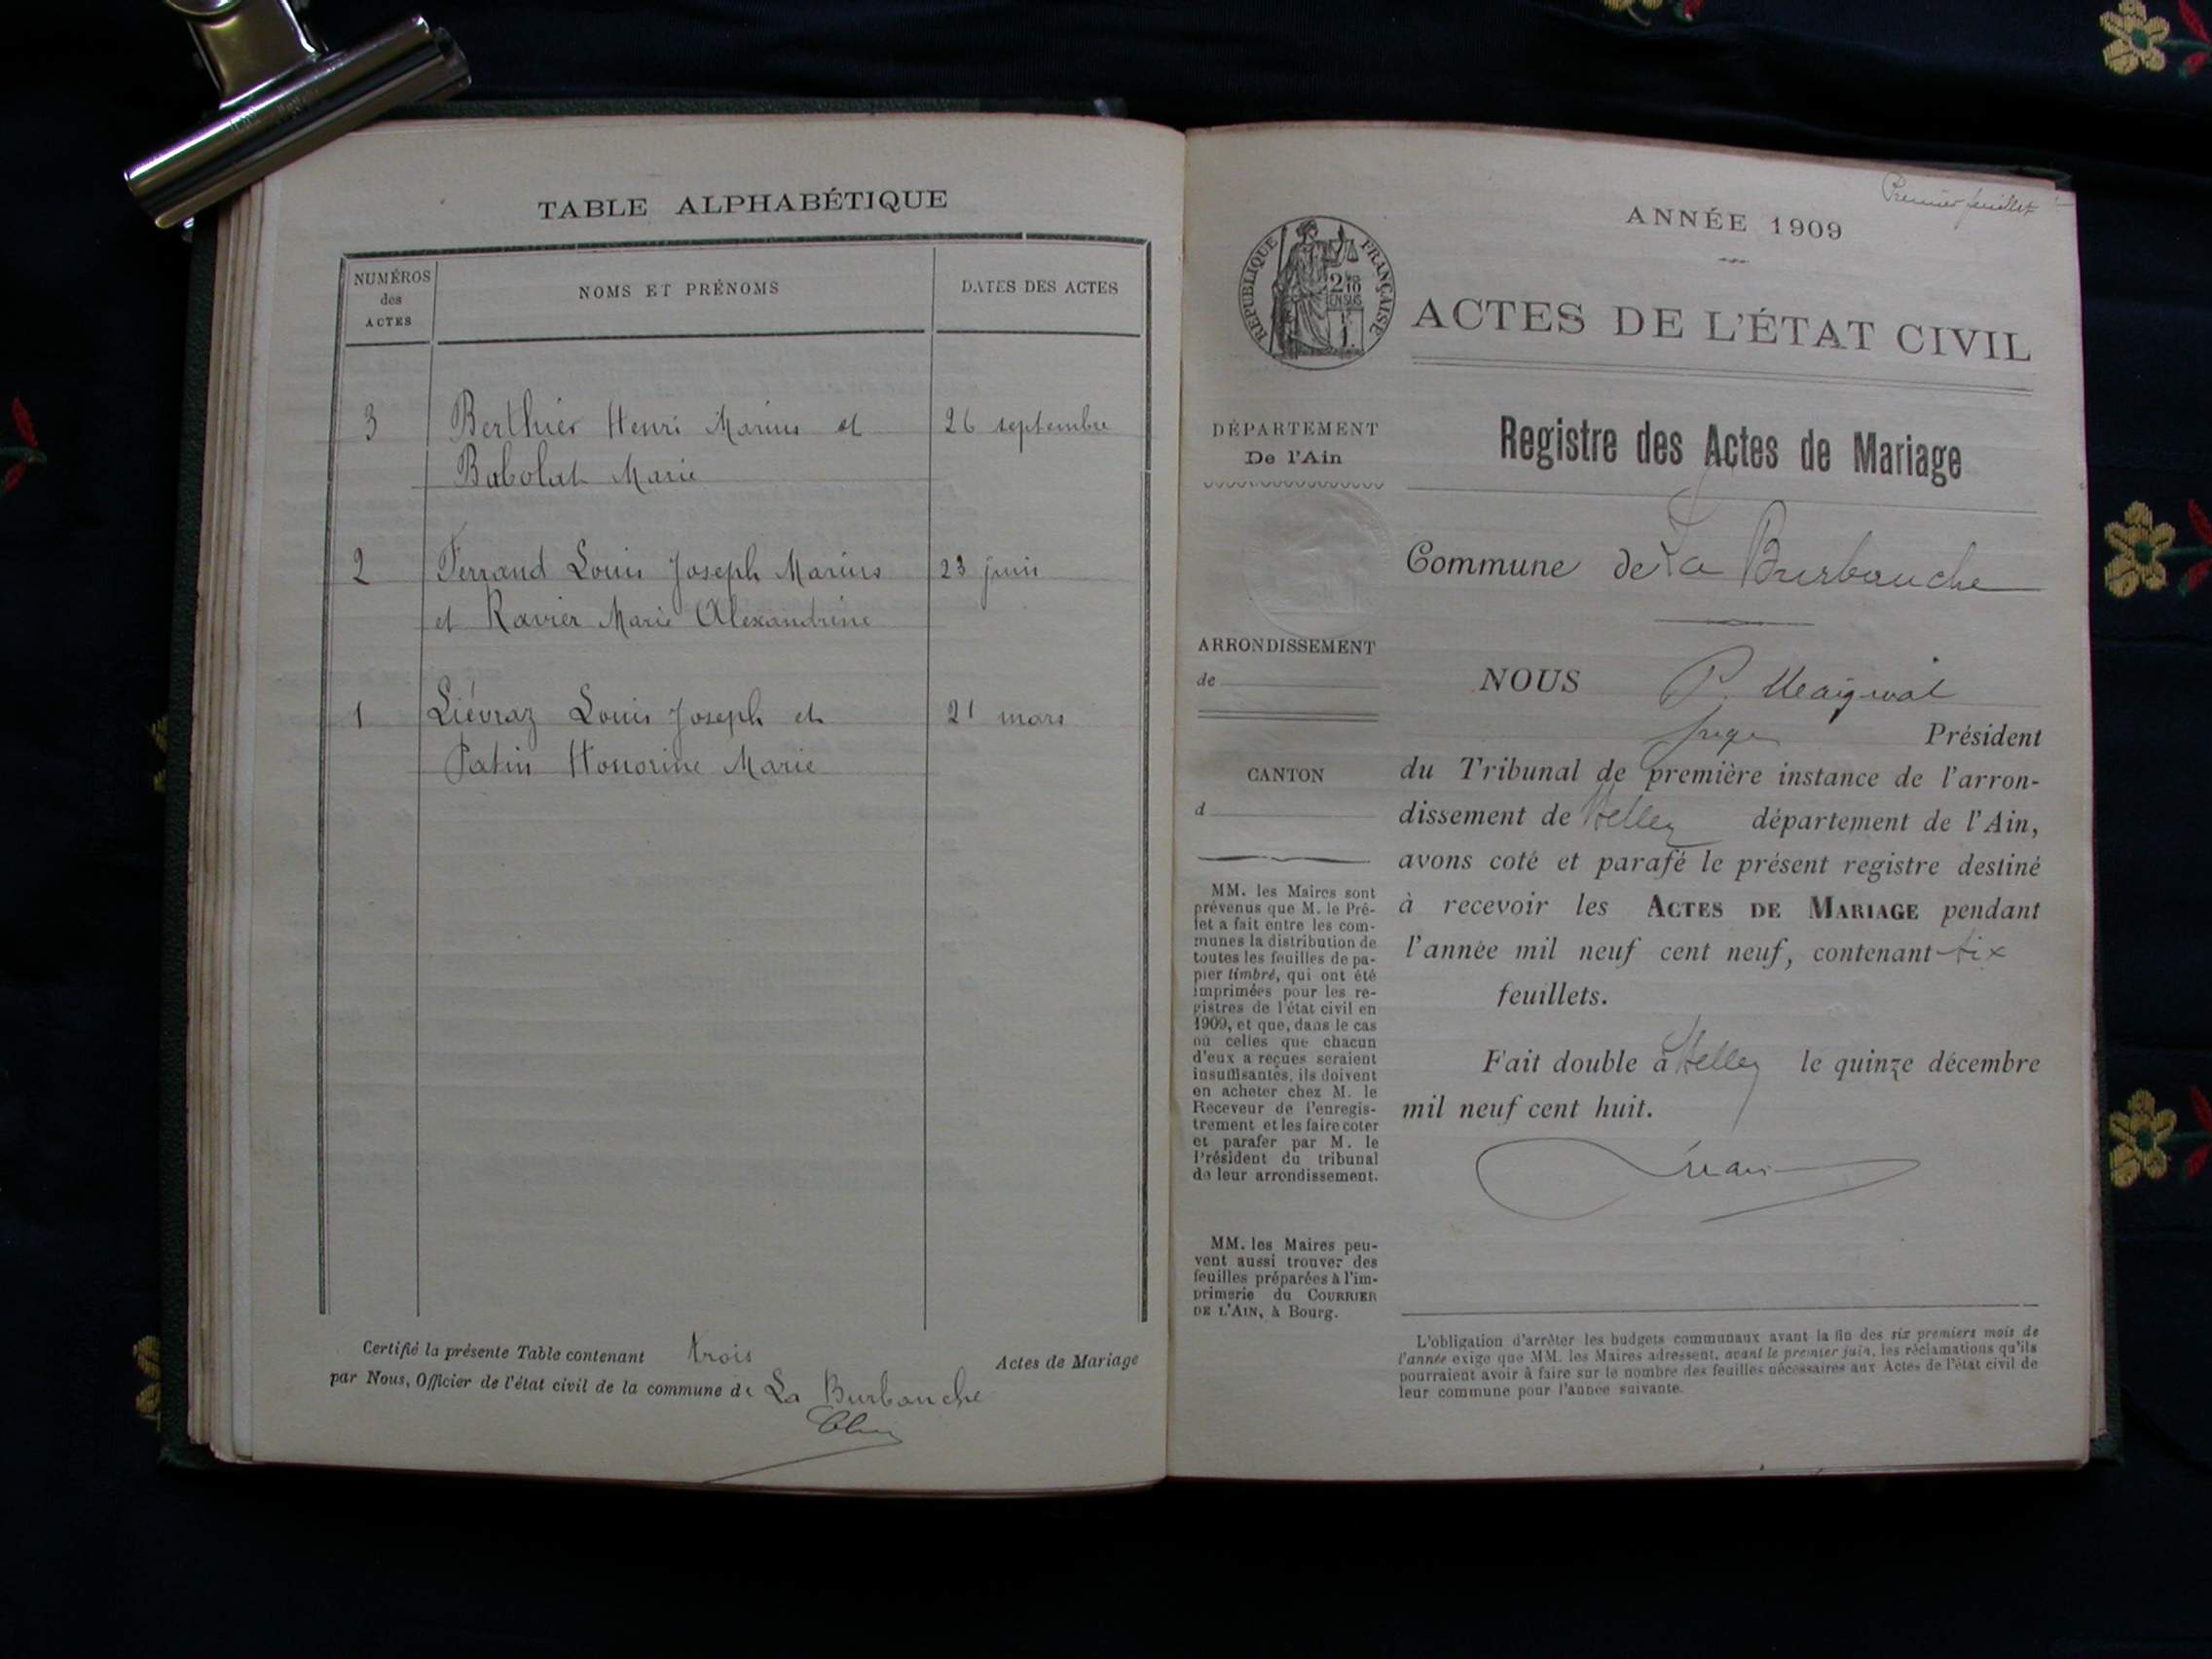 TABLE ALPHABÉTIQUE
NUMÉROS
des
ACTES
NOMS ET PRÉNOMS
DATES DES ACTES
3 Berthier Henri Marius et 26 septembre
Babolat Marie
2 Ferrand Louis Joseph Marius 23 juin
et Ravier Marie Alexandrine
1 Liévraz Louis Joseph et 21 mars
Patin Honorine Marie
Certifié la présente Table contenant trois Actes de Mariage
par Nous, Officier de l'état civil de la commune de La Burbanche
Premier feuillet
ANNÉE 1909
RÉPUBLIQUE FRANÇAISE
ACTES DE L'ÉTAT CIVIL
DÉPARTEMENT
De l'Ain
ARRONDISSEMENT
de
CANTON
d
MM. les Maires sont
prévenus que M. le Pré-
fet a fait entre les com-
munes la distribution de
toutes les feuilles de pa-
pier timbré, qui ont été
imprimées pour les re-
gistres de l'état civil en
1909, et que, dans le cas
où celles que chacun
d'eux a reçues seraient
insuffisantes, ils doivent
en acheter chez M. le
Receveur de l'enregis-
trement et les faire coter
et parafer par M. le
Président du tribunal
de leur arrondissement.
MM. les Maires peu-
vent aussi trouver des
feuilles préparées à l'im-
primerie du COURRIER
DE L'AIN, à Bourg.
Registre des Actes de Mariage
Commune de La Burbanche
NOUS P.
juge Président
du Tribunal de première instance de l'arron-
dissement de Belley département de l'Ain,
avons coté et parafé le présent registre destiné
à recevoir les ACTES DE MARIAGE pendant
l'année mil neuf cent neuf, contenant six
feuillets.
Fait double à Belley le quinze décembre
mil neuf cent huit.
L'obligation d'arrêter les budgets communaux avant la fin des six premiers mois de
l'année exige que MM. les Maires adressent, avant le premier juin, les réclamations qu'ils
pourraient avoir à faire sur le nombre des feuilles nécessaires aux Actes de l'état civil de
leur commune pour l'année suivante.